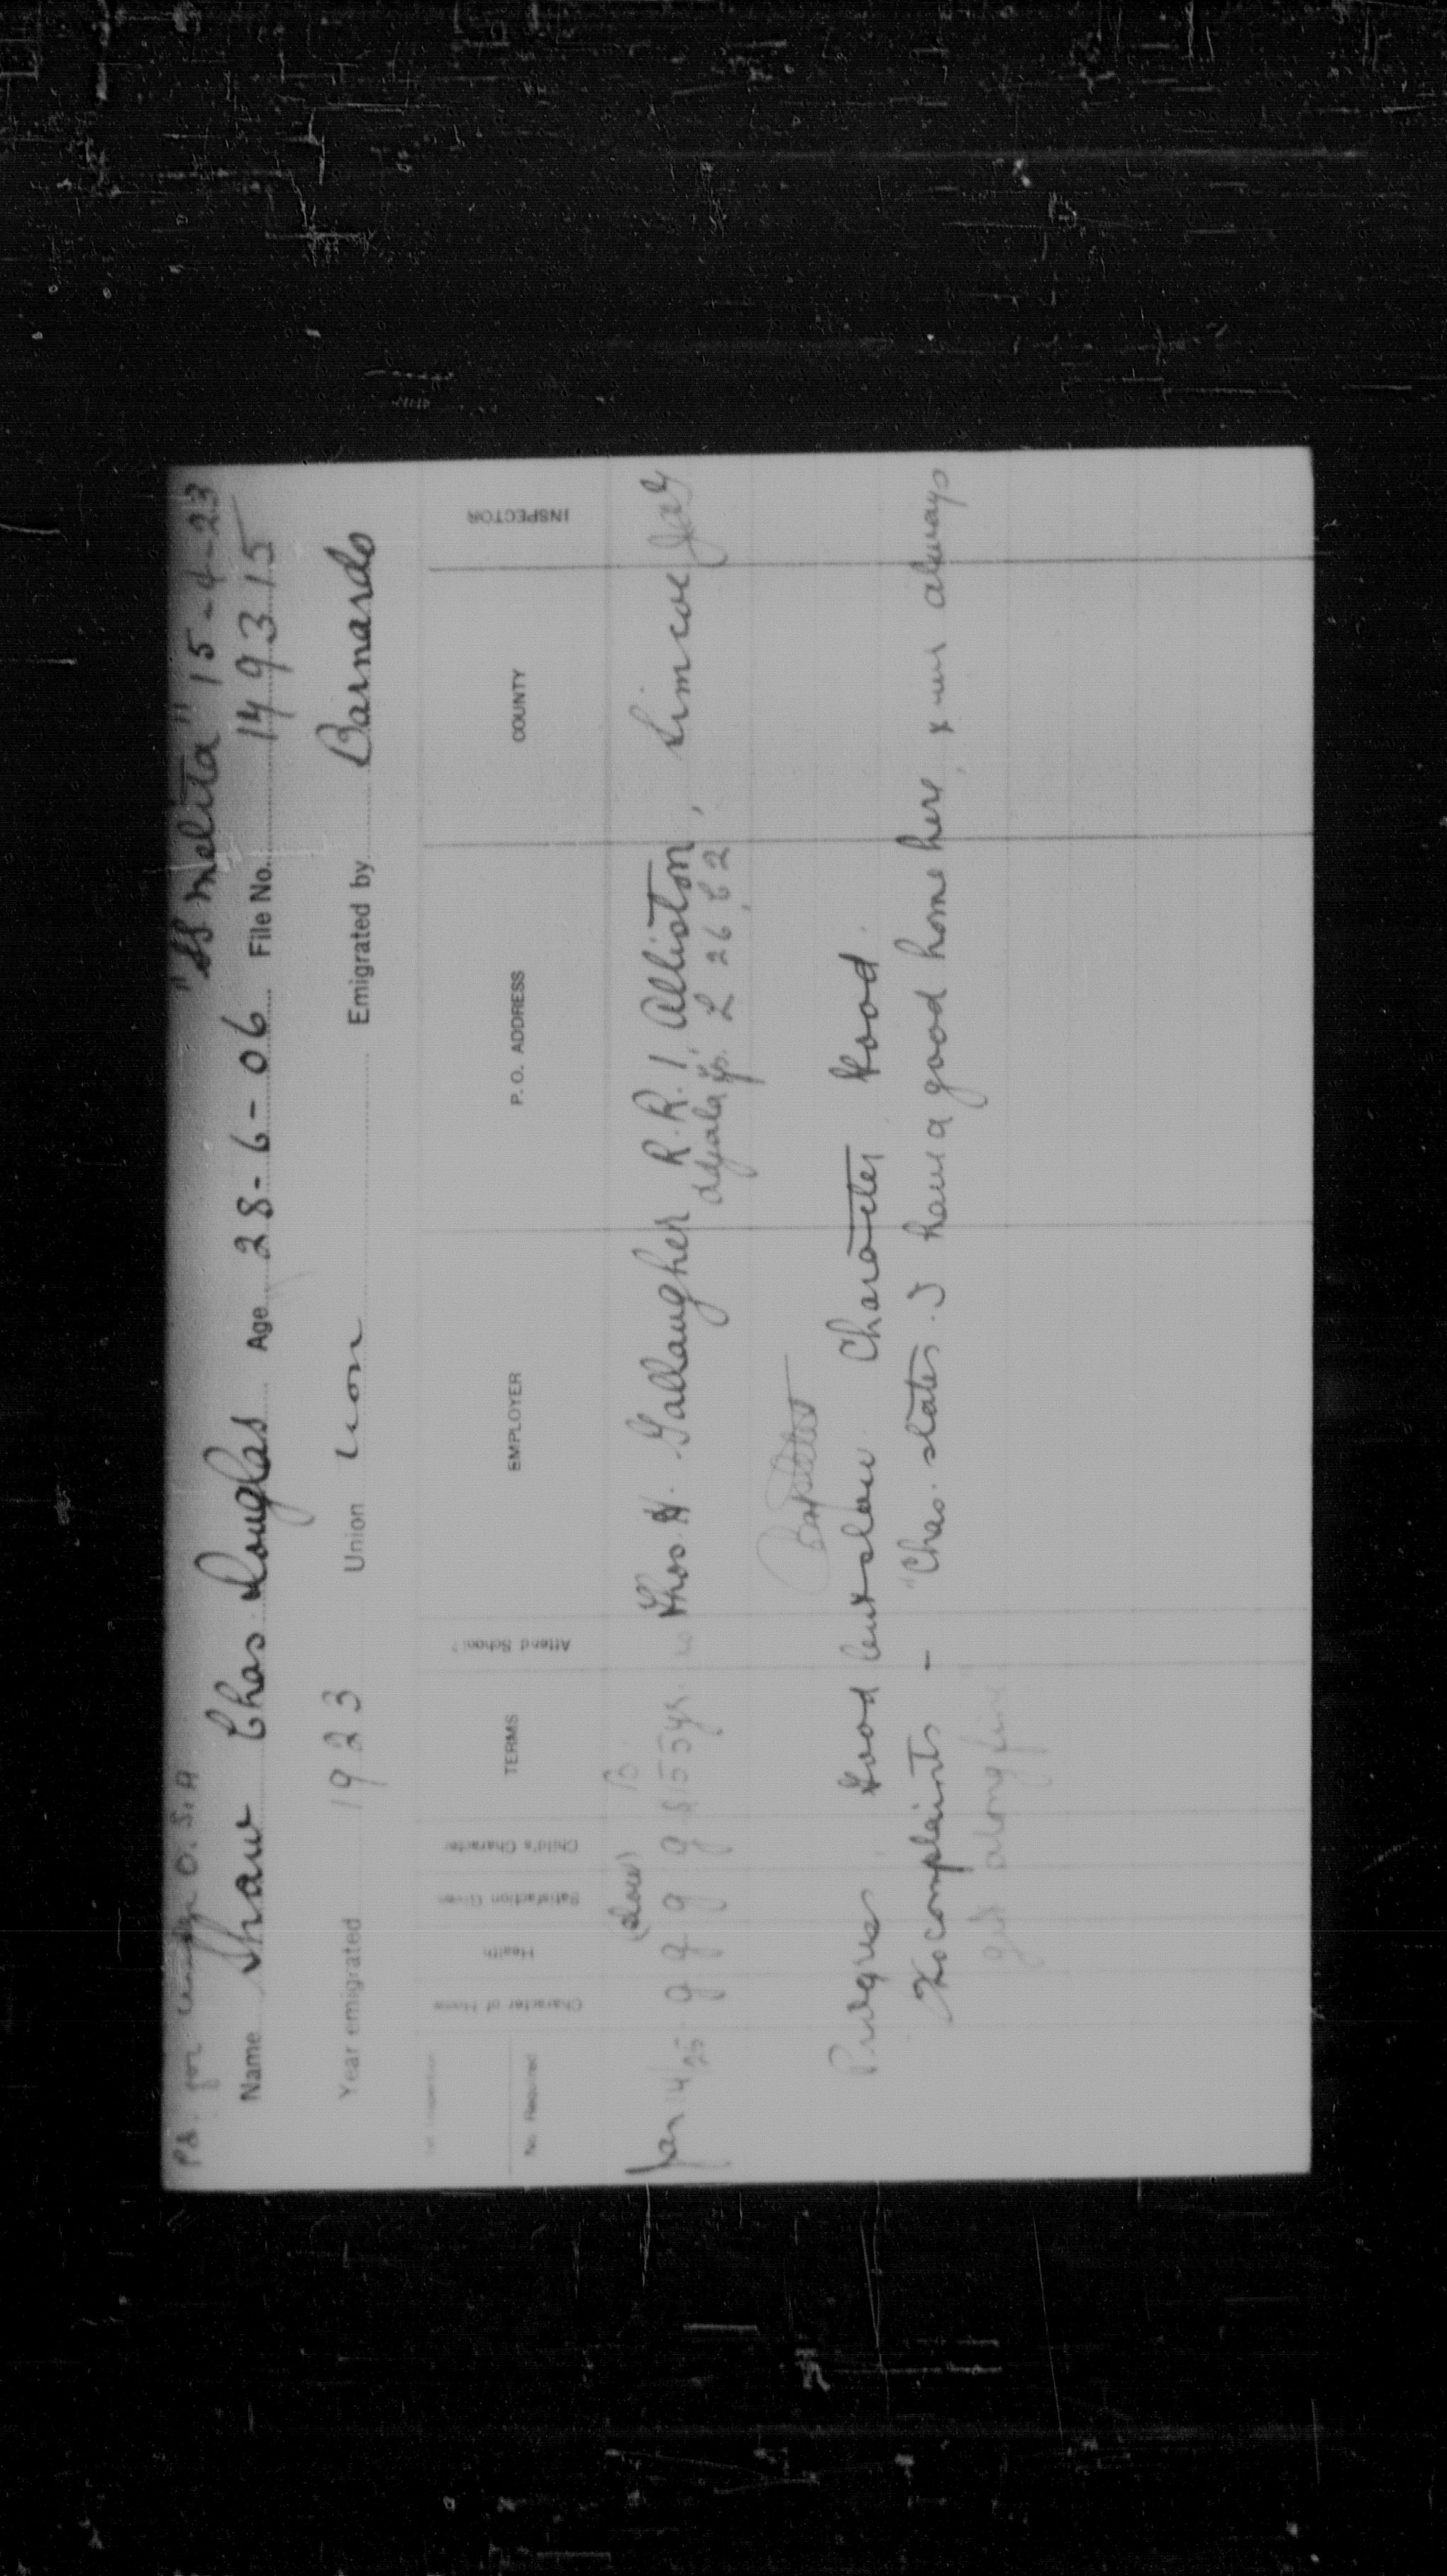 Pd. for O. S. A "SS Melita" 15-4-23
Name Shaw Chas Douglas Age 28-6-06 File No. 149315
Year emigrated 1923 Union non Emigrated by Barnardo
Inspection
No. Required
Character of Home
Health
Satisfaction Given
Child's Character
TERMS
Attend School?
EMPLOYER
P. O. ADDRESS
COUNTY
INSPECTOR
(slow) B.
Jan 14/25 g g g g $155 yr. no Thos. H. Gallaugher R.R.1, Alliston, Simcoe
Adjala Tp. L 26, C 2
Baptist
Progress. Good but slow Character. Good.
No complaints - "Chas. states. I have a good home here, & we always
get along fine"